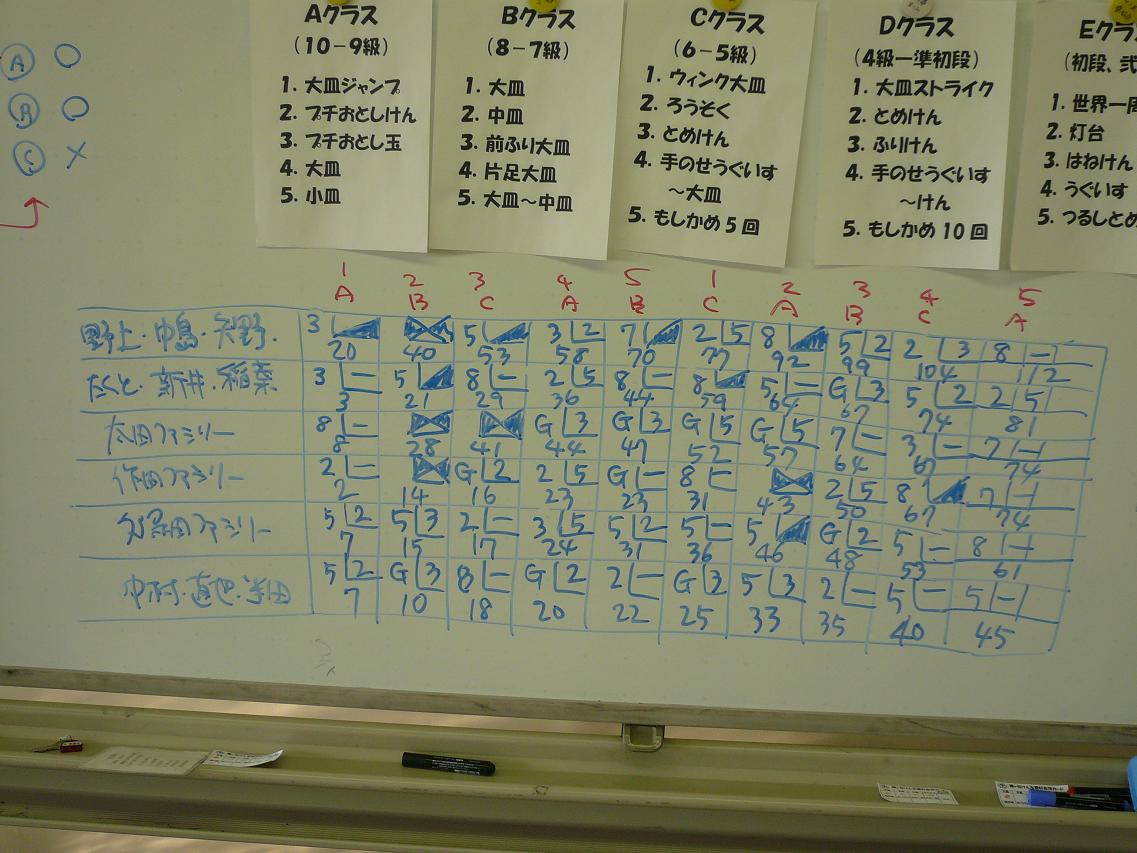 A ○
B ○
C ×
Aクラス
(10-9級)
1. 大皿ジャンプ
2. プチおとしけん
3. プチおとし玉
4. 大皿
5. 小皿
Bクラス
(8-7級)
1. 大皿
2. 中皿
3. 前ふり大皿
4. 片足大皿
5. 大皿〜中皿
Cクラス
(6-5級)
1. ウィンク大皿
2. ろうそく
3. とめけん
4. 手のせうぐいす
〜大皿
5. もしかめ5回
Dクラス
(4級ー準初段)
1. 大皿ストライク
2. とめけん
3. ふりけん
4. 手のせうぐいす
〜けん
5. もしかめ10回
Eクラ
(初段、弐
1. 世界一周
2. 灯台
3. はねけん
4. うぐいす
5. つるしとめ
1 2 3 4 5 1 2 3 4 5
A B C A B C A B C A
野上・中島・矢野 3 5 3 2 7 2 5 8 5 2 2 3 8 -
20 40 53 58 70 77 92 99 104 112
たくと・新井・稲葉 3 - 5 8 - 2 5 8 - 8 5 - G 3 5 2 2 5
3 21 29 36 44 59 64 67 74 81
太田ファミリー 8 - G 3 G 3 G 5 G 5 7 - 3 - 7 -
8 28 41 44 47 52 57 64 67 74
作田ファミリー 2 - G 2 2 5 G - 8 - 2 5 8 7 -
2 14 16 23 23 31 43 50 67 74
ファミリー 5 2 5 3 2 - 3 5 5 2 5 - 5 G 2 5 - 8 -
7 15 17 24 31 36 46 48 53 61
中村・直也・半田 5 2 G 3 8 - G 2 2 - G 3 5 3 2 - 5 - 5 -
7 10 18 20 22 25 33 35 40 45